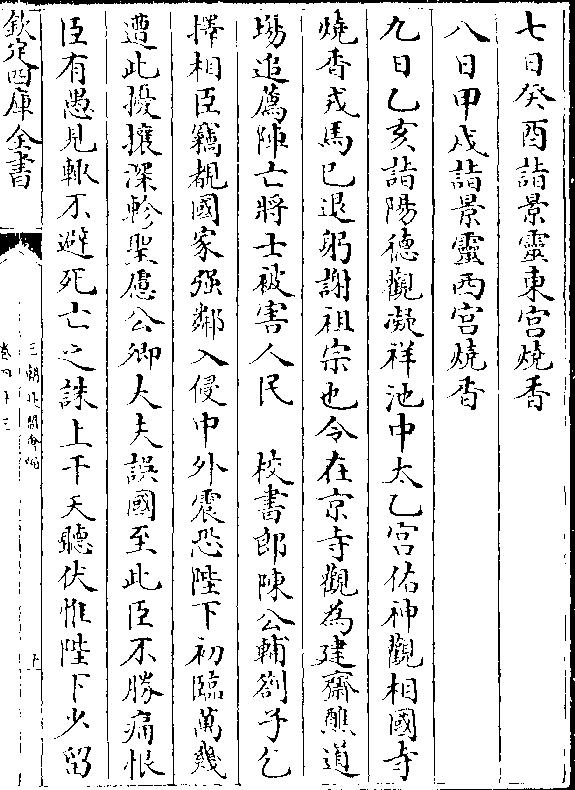 七日癸酉詣景靈東宮燒香
八日甲戌詣景靈西宮燒香
九日乙亥詣陽德觀凝祥池中太乙宮佑神觀相國寺
燒香戎馬已退躬謝祖宗也令在京寺觀為建齋醮道
場追薦陣亡將士被害人民　校書郎陳公輔劄子乞
擇相臣竊覩國家强鄰入侵中外震恐陛下初臨萬幾
遭此擾攘深軫聖慮公卿大夫誤國至此臣不勝痛恨
臣有愚見輙不避死亡之誅上干天聽伏惟陛下少留
欽定四庫全書
三朝北盟會編
卷四十三